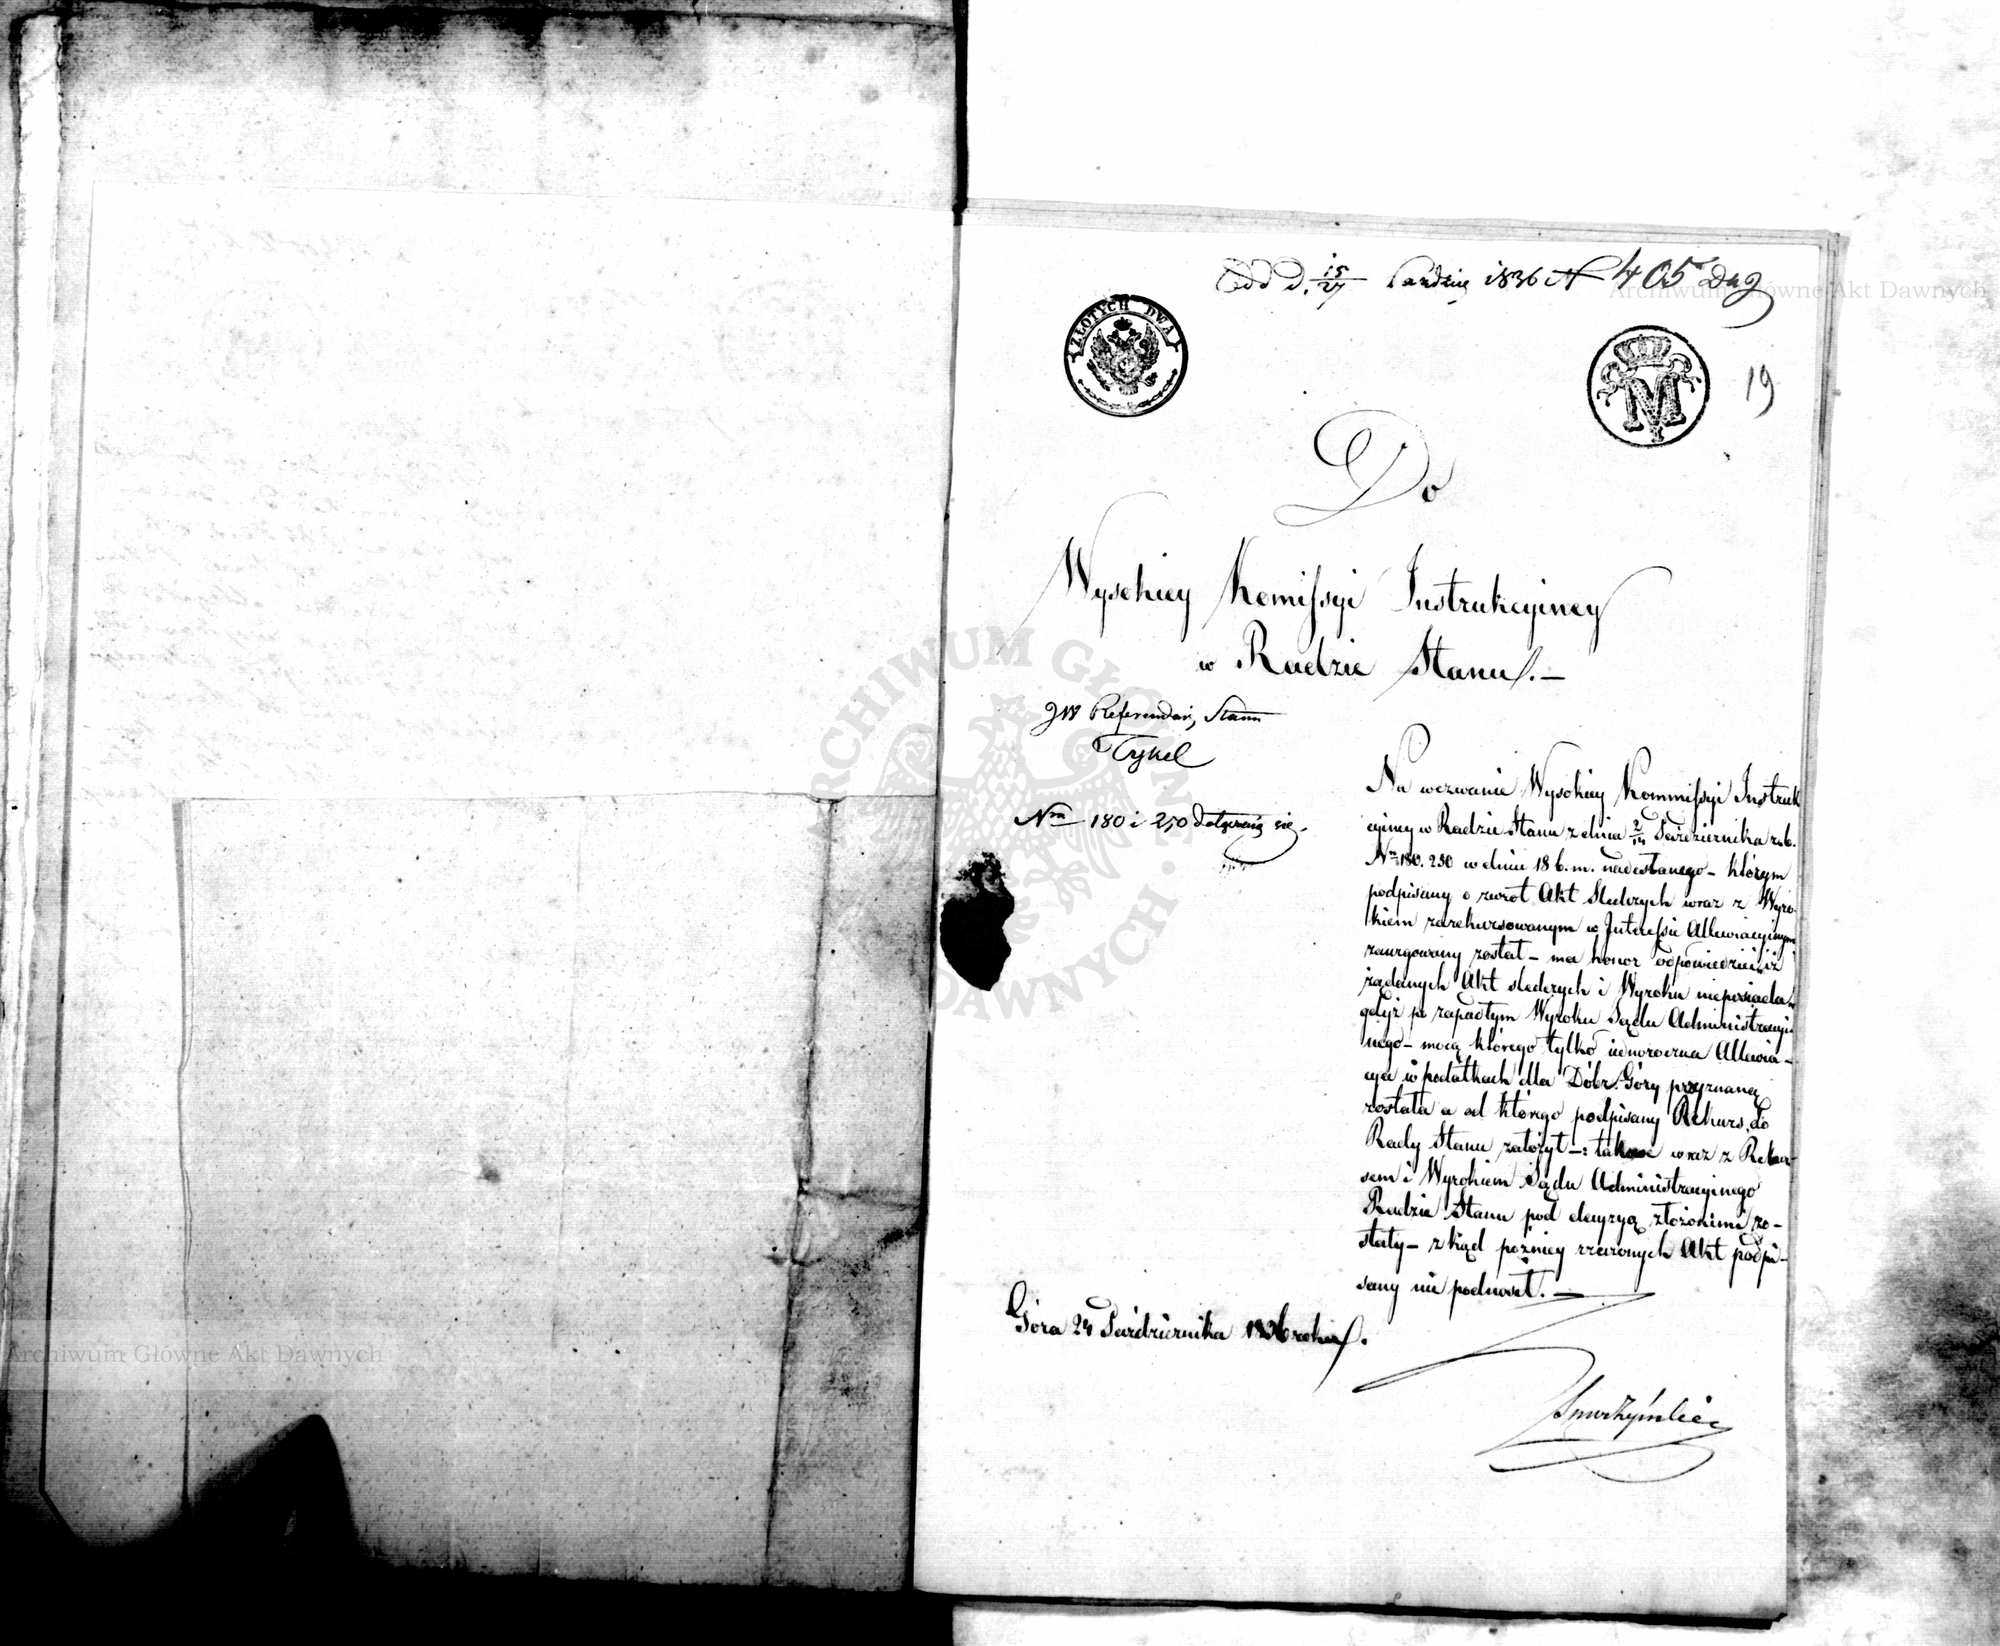 Odd d. 15/27 Paźdz 1836 N 405 Dag
ZŁOTYCH DWA
M
19
Do
Wysokiey Komissyi Instrukcyiney
w Radzie Stanu.—
JW Referendarz Stanu
Tykel
Nra 180 i 250 dołączeniu się.
Na wezwanie Wysokiey Kommissyi Instruk
cyiney w Radzie Stanu z dnia 2/14 Października r.b.
Nr 180. 250 w dniu 18 b.m. nadesłanego – którym
podpisany o zwrot Akt Sledczych wraz z Wyro-
kiem zarekursowanym w Interessie Allewiacyinym
zaurgowany został – ma honor odpowiedzieć iż
żądanych Akt sledczych i Wyroku nieposiada
gdyż po zapadłym Wyroku Sądu Administracyi
nego – mocą którego tylko iednoroczna Allewia-
cya w podatkach dla Dóbr Góry przyznaną
została a od którego podpisany Rekurs do
Rady Stanu założył –: takowe wraz z Rekur-
sem i Wyrokiem Sądu Administracyinego
Radzie Stanu pod decyzyą złożonemi zo-
stały – zkąd pozniey rzeczonych Akt podpi-
sany nie podnosił.—
Góra 24 Października 1836 roku.
ARCHIWUM GŁÓWNE AKT DAWNYCH
Archiwum Główne Akt Dawnych
Archiwum Główne Akt Dawnych